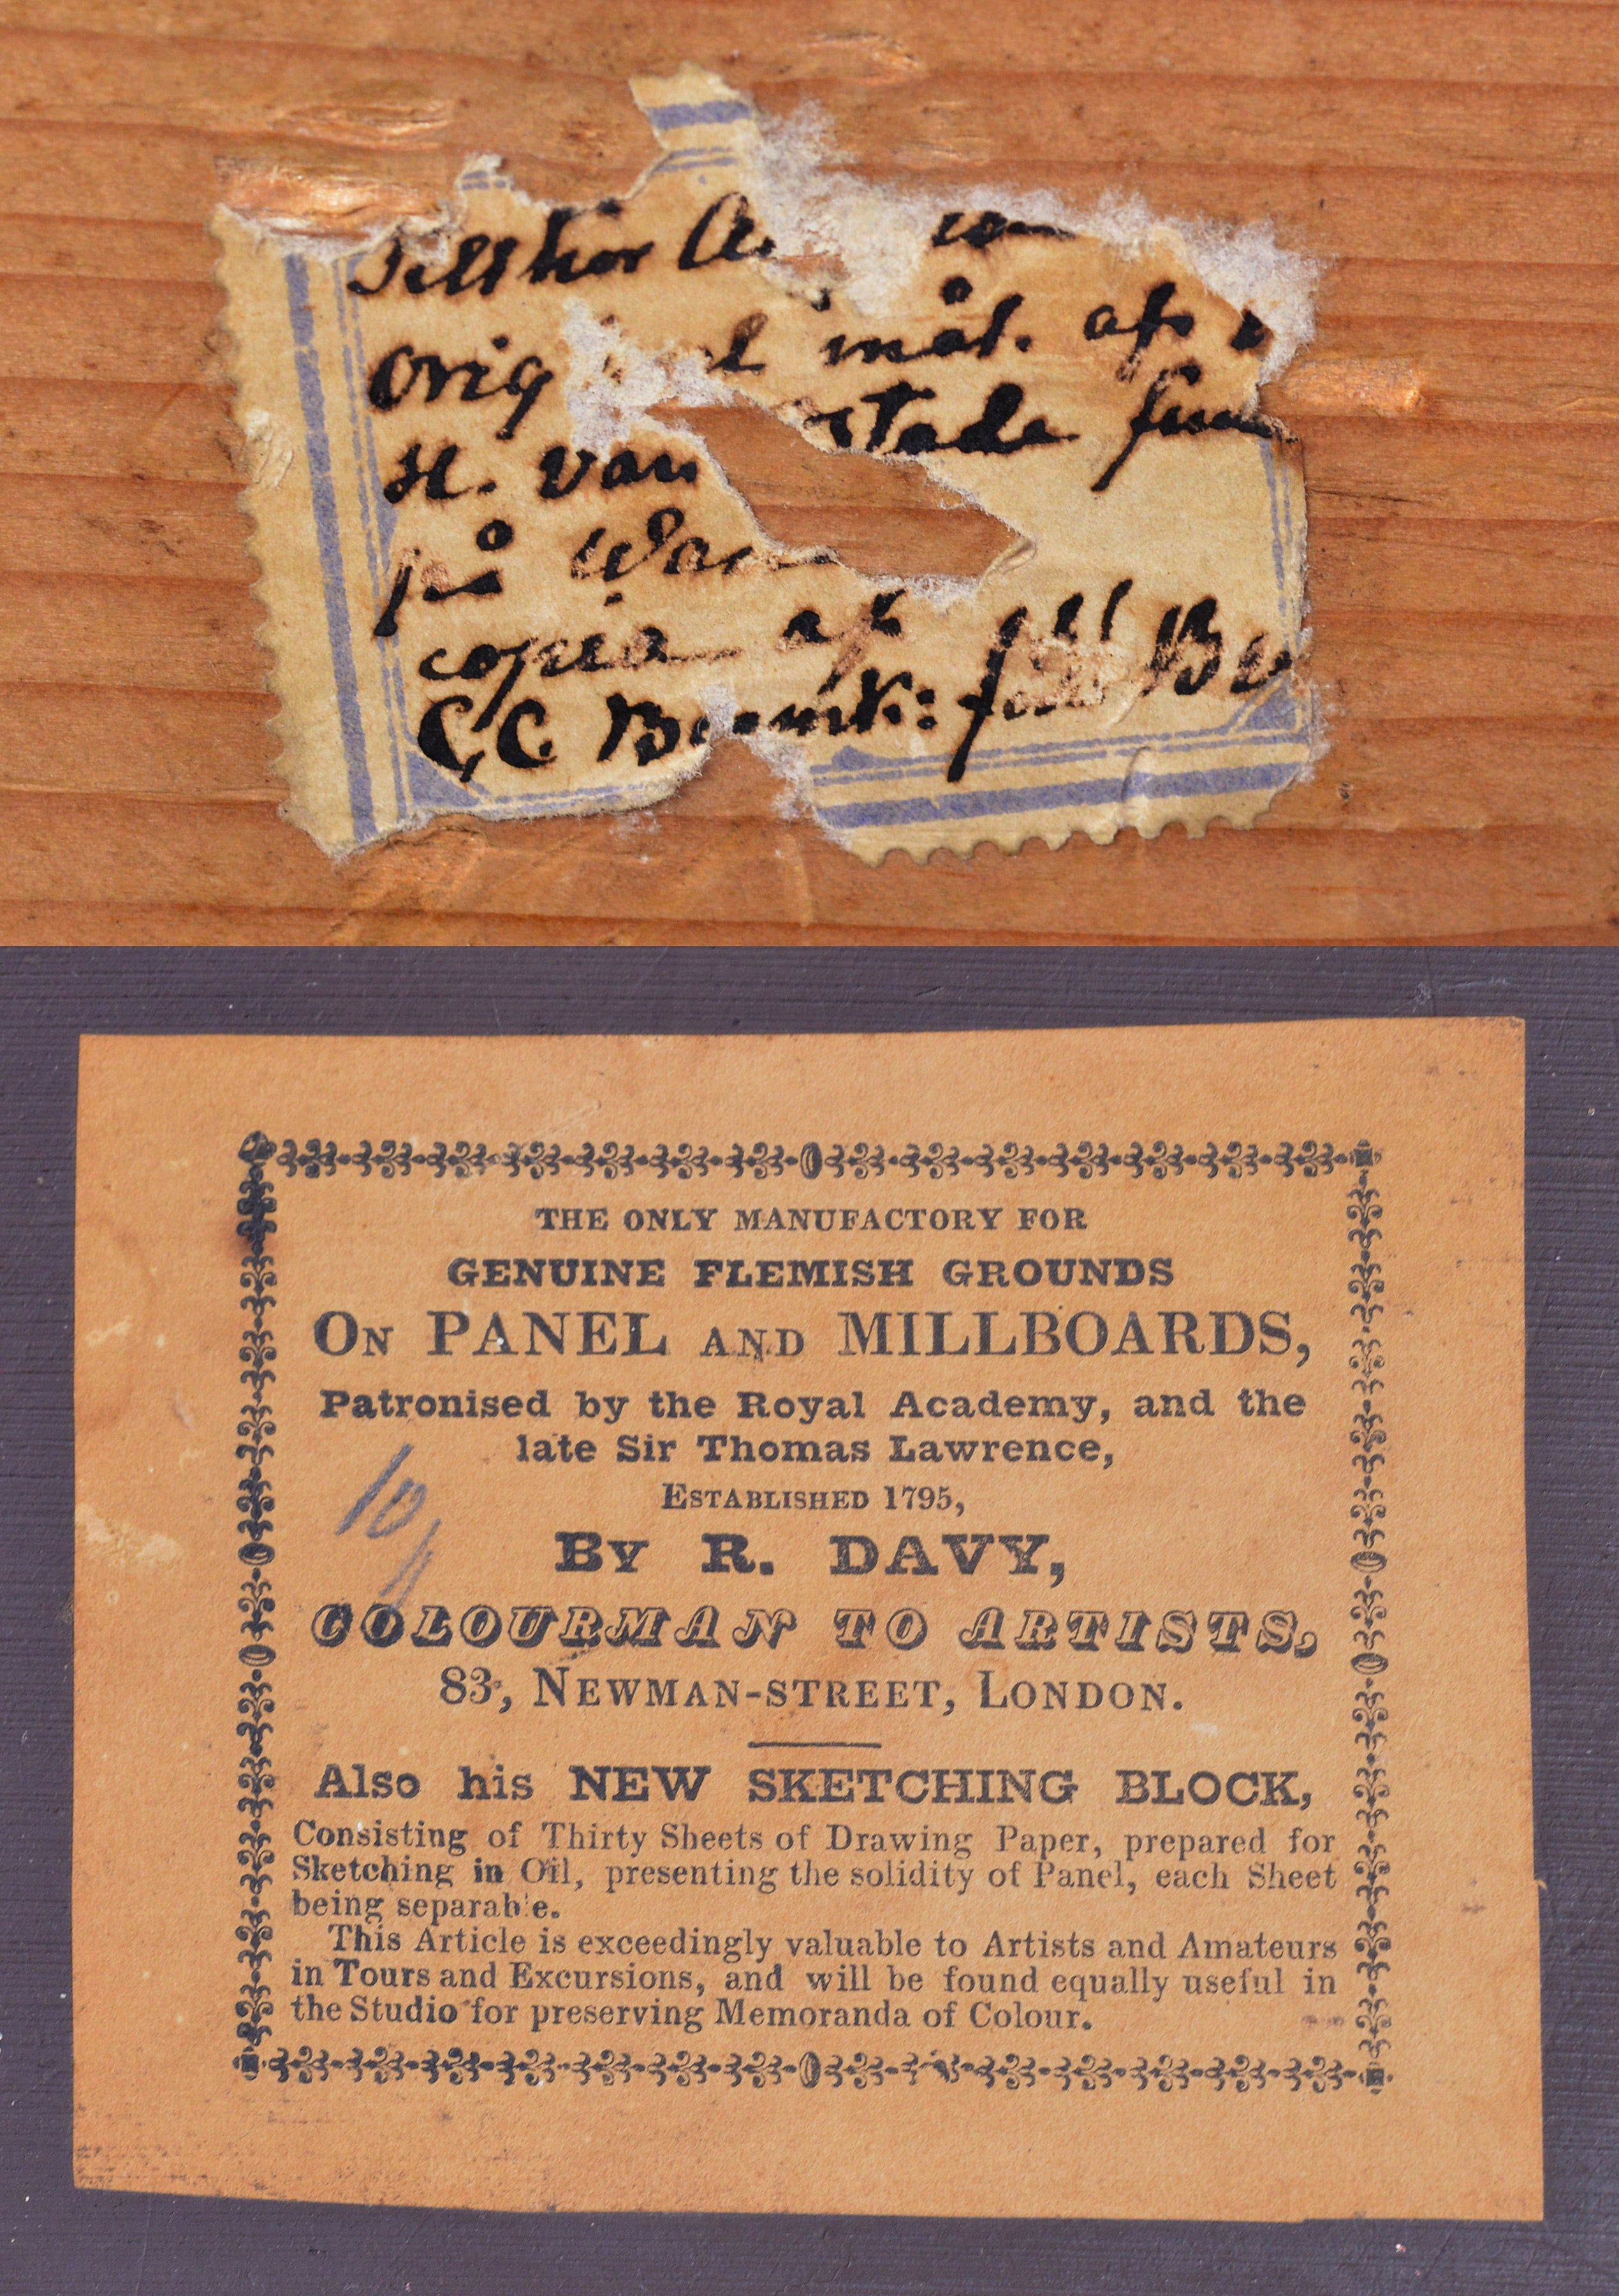 Tillhör A.
Orig l mål. af
H. van stade
på Wan
copia af
C, C. B
THE ONLY MANUFACTORY FOR
GENUINE FLEMISH GROUNDS
ON PANEL AND MILLBOARDS,
Patronised by the Royal Academy, and the
late Sir Thomas Lawrence,
ESTABLISHED 1795,
BY R. DAVY,
COLOURMAN TO ARTISTS,
83, NEWMAN-STREET, LONDON.
10
Also his NEW SKETCHING BLOCK,
Consisting of Thirty Sheets of Drawing Paper, prepared for
Sketching in Oil, presenting the solidity of Panel, each Sheet
being separable.
This Article is exceedingly valuable to Artists and Amateurs
in Tours and Excursions, and will be found equally useful in
the Studio for preserving Memoranda of Colour.